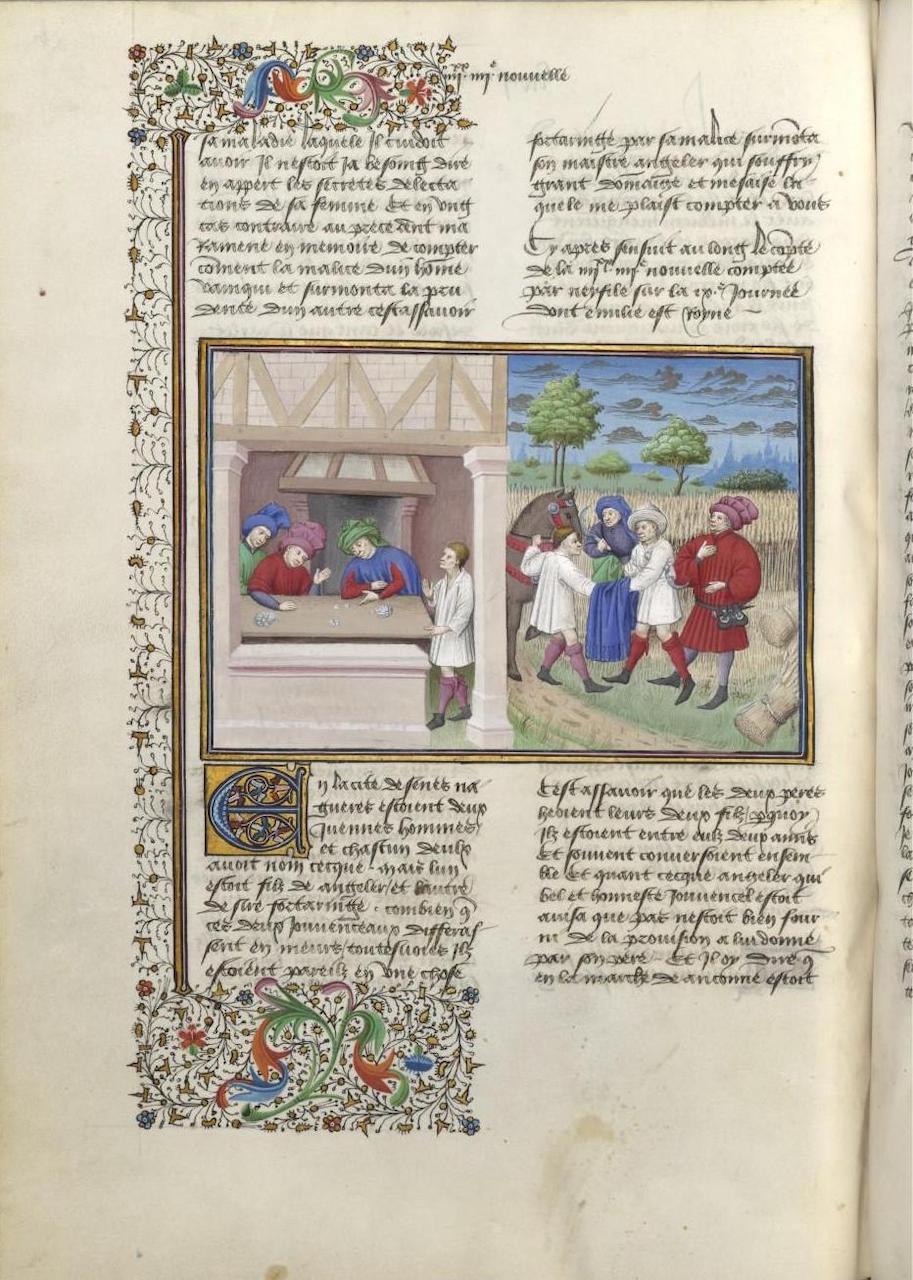 iiii. nouuelle
sa maladie laquele il cuidoit
auoir Il nestoit ja besoing dire
en appert les secretes delecta
cions de sa femme Et en vng
cas contraire au precedent ma
ramene en memoire de compter
coment la malice dun home
vainqui et surmonta la pru
dence dun autre cest assauoir
fortaringe par sa malice surmota
son maistre angelier qui souffry
grant domaige et mesaise la
quele me plaist compter a vous
Cy apres sensuit au long le copte
de la iiii. nouuelle comptee
par neifile sur la ix.e Journee
dont emilie est royne
En la cite de senes na
gueres estoient deux
Jueunes hommes
et chascun deulx
auoit nom cecque . mais lun
estoit filz de angelier et lautre
de sire fortaringe . combien q
ces deux Jouuenceaux differas
sent en meurs toutesuoies ilz
estoient pareilz en vne chose
Cest assauoir que les deux peres
heoient leurs deux filz pquoy
Ilz estoient entre eulx deux amis
Et souuent conuersoient ensem
ble Et quant cecque angelier qui
bel et honneste Jouuencel estoit
auisa que pas nestoit bien seur
ne de la prouision a lui donnee
par son pere . Et Il oy dire q
en la marche de anconne estoit